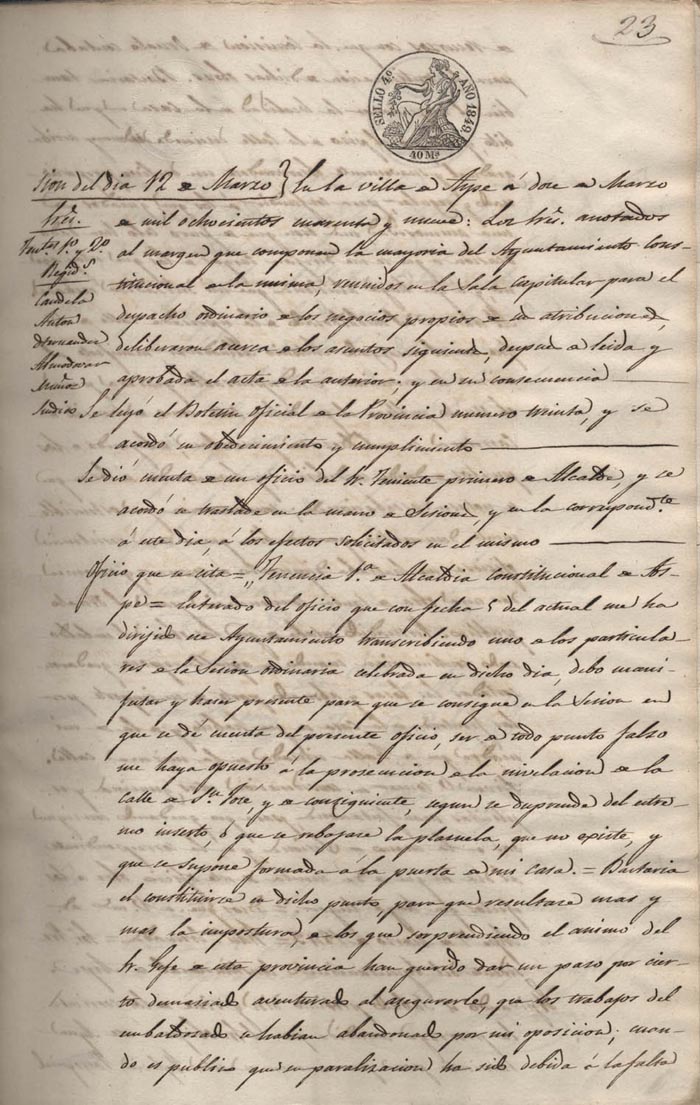 23
SELLO 4º AÑO 1849
40 Ms
sion del dia 12 de Marzo } En la villa de Aspe á doce de Marzo
Sres. de mil ochocientos cuarenta y nueve: Los Sres. anotados
Tentes 1º y 2º al margen que componen la mayoria del Ayuntamiento Cons-
Regids titucional de la misma, reunidos en la Sala Capitular para el
Candela despacho ordinario de los negocios propios de su atribucion,
Anton
Hernandez deliberaron acerca de los asuntos siguiente, despues de leida y
Almodovar
Muñoz aprobada el acta de la anterior; y en su consecuencia
Sindico Se leyó el Boletin oficial de la Provincia numero treinta, y se
acordó su obedecimiento y cumplimiento
Se dió cuenta de un oficio del Sr. Teniente primero de Alcalde, y se
acordó se traslade en la mano de Sesiones y en la correspondte
á este dia, á los efectos solicitados en el mismo
Oficio que se cita = „Tenencia 1ª de Alcaldia Constitucional de As-
pe = Enterado del oficio que con fecha 5 del actual me ha
dirijido ese Ayuntamiento transcribiendo uno de los particula-
res de la Sesion ordinaria celebrada en dicho dia, debo mani-
festar y hacer presente para que se consigne en la Sesion en
que se dé cuenta del presente oficio, ser de todo punto falso
me haya opuesto á la prosecucion de la nivelacion de la
calle de Sn José, y de consiguiente, segun se desprende del estre-
mo inserto, ó que se rebajase la plazuela, que no existe, y
que se supone formada á la puerta de mi casa. = Bastaria
el constituirse en dicho punto, para que resultase mas y
mas la impostura, de los que sorprendiendo el animo del
Sr. Gefe de esta provincia han querido dar un paso por cier-
to demasiado aventurado al asegurarle, que los trabajos del
embaldosado se habian abandonado por mi oposicion; cuan-
do es publico que su paralizacion ha sido debida á la falta